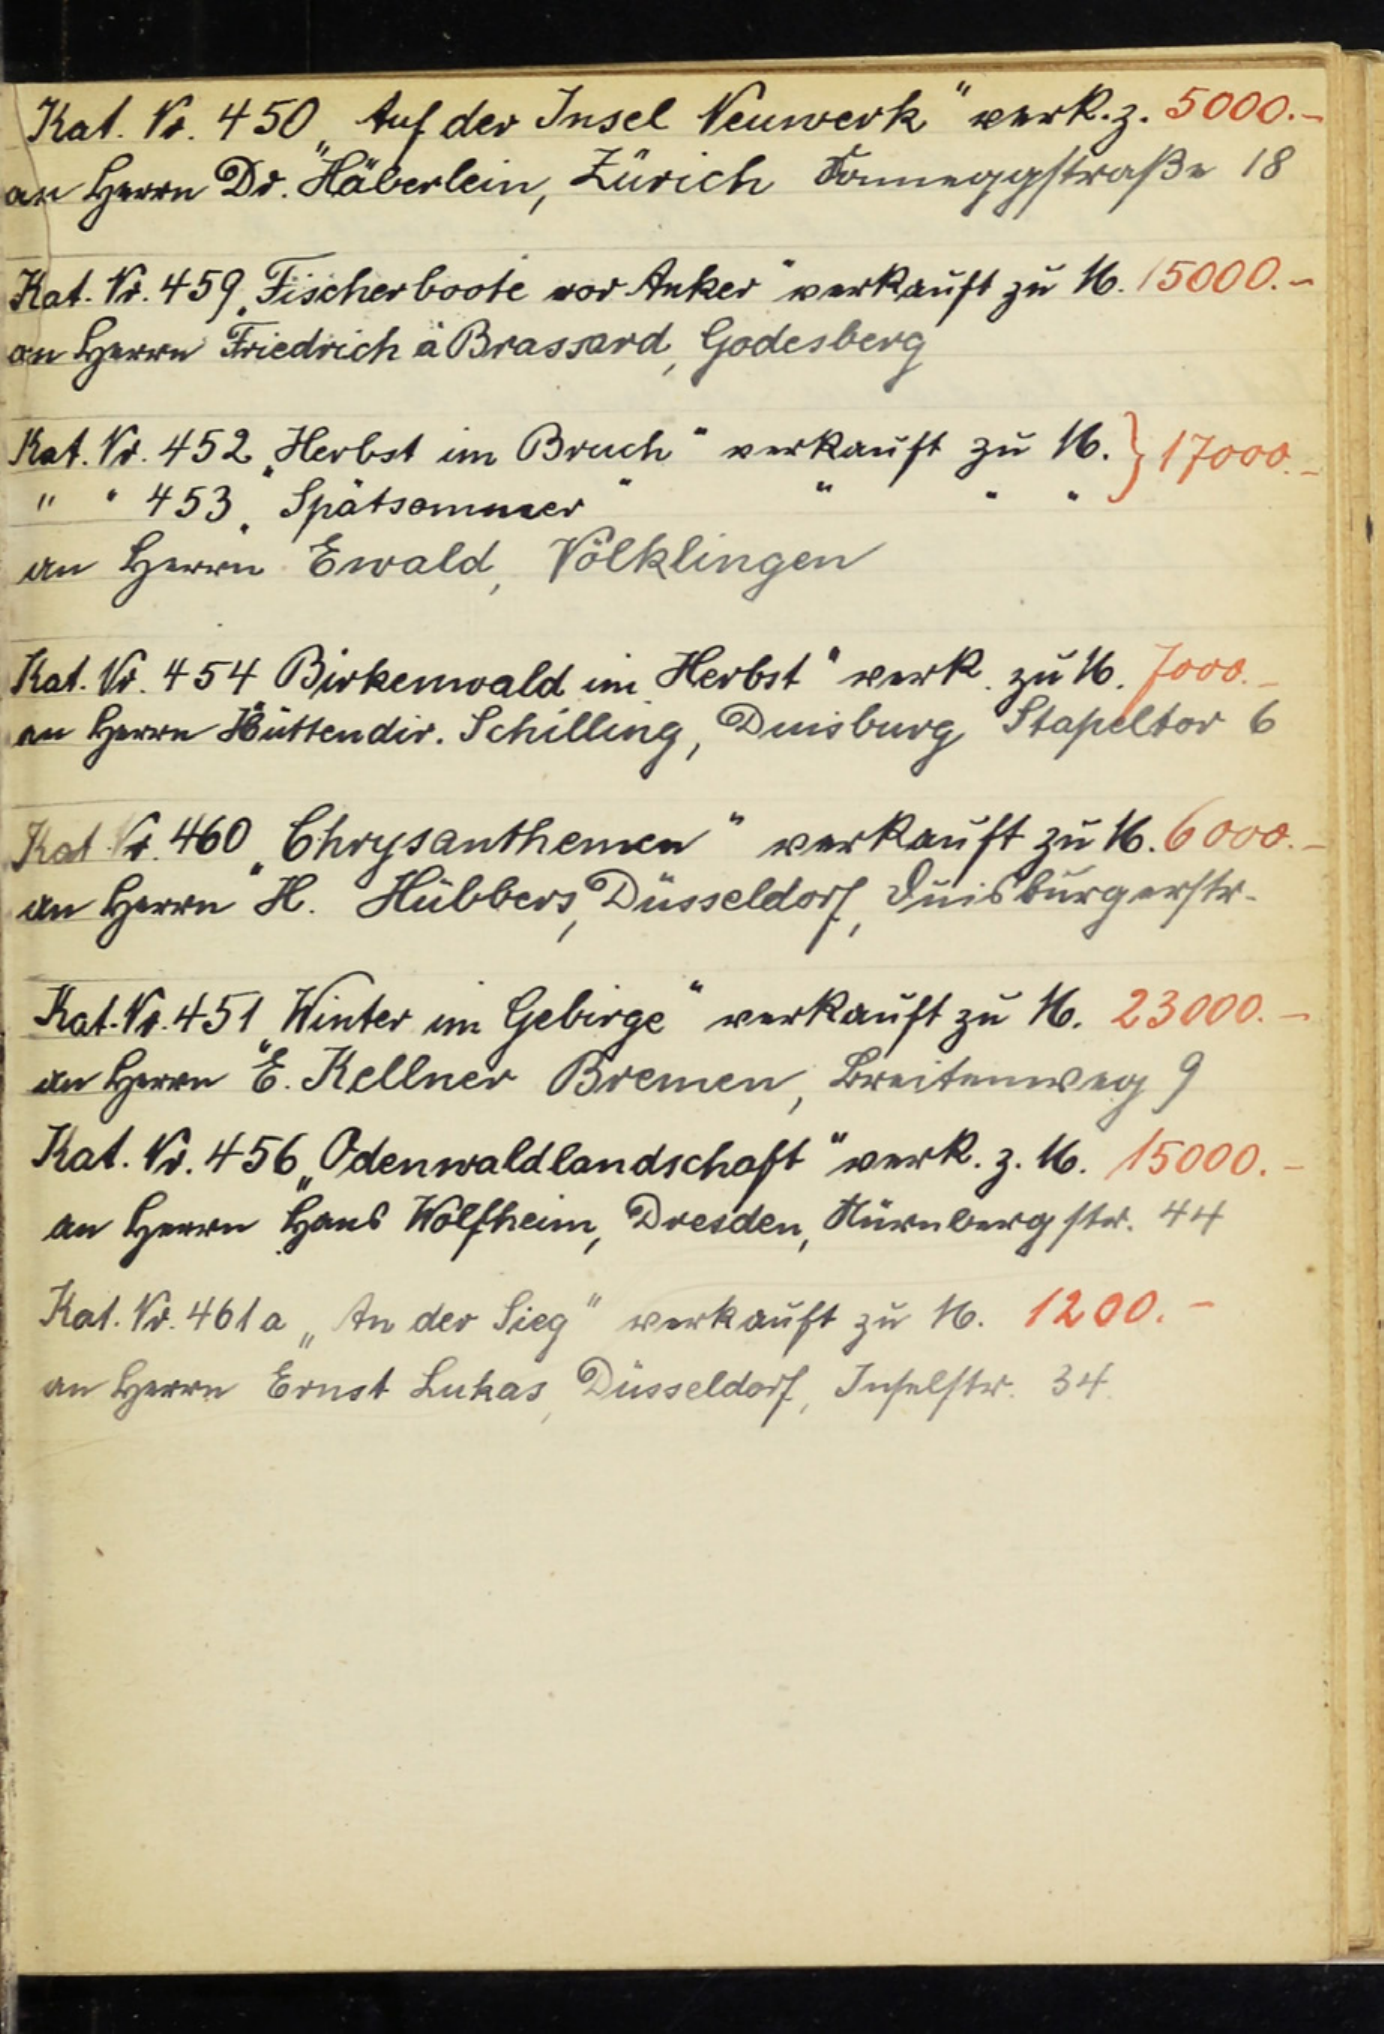 Kat. Nr. 450 „Auf der Insel Neuwerk“ verk. z. 5000.–
an Herrn Dr. Häberlein, Zürich Sonneggstraße 18
Kat. Nr. 459 „Fischerboote vor Anker“ verkauft zu M. 15000.–
an Herrn Friedrich à Brassard, Godesberg
Kat. Nr. 452 „Herbst im Bruch“ verkauft zu M. } 17000.–
" " 453 „Spätsommer“ " " "
an Herrn Ewald, Völklingen
Kat. Nr. 454 „Birkenwald im Herbst“ verk. zu M. 7000.–
an Herrn Hüttendir. Schilling, Duisburg Stapeltor 6
Kat. Nr. 460 „Chrysanthemen“ verkauft zu M. 6000.–
an Herrn H. Hübbers, Düsseldorf, Duisburgerstr.
Kat. Nr. 451 „Winter im Gebirge“ verkauft zu M. 23000.–
an Herrn E. Kellner Bremen, Breitenweg 9
Kat. Nr. 456 „Odenwaldlandschaft“ verk. z. M. 15000.–
an Herrn Hans Wolfheim, Dresden, Nürnbergstr. 44
Kat. Nr. 461a „An der Sieg“ verkauft zu M. 1200.–
an Herrn Ernst Lukas, Düsseldorf, Inselstr. 34.